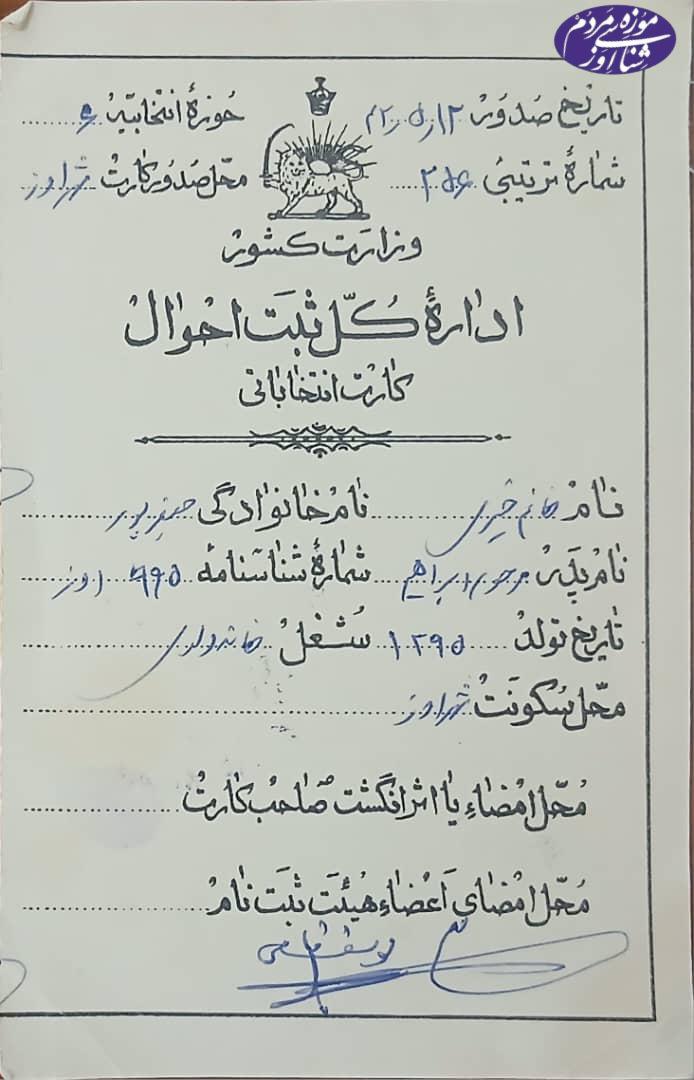 موزه مردم شناسی اوز
تاریخ صدور ۴۲ر۵ر۱۲ حوزهٔ انتخابیه ۶
شمارهٔ ترتیبی ۲۵۶ محل صدور کارت شهر اوز
وزارت کشور
ادارهٔ کلّ ثبت احوال
کارت انتخاباتی
نام خانم نام خانوادگی
نام پدر مرحوم ابراهیم شمارهٔ شناسنامه ۶۹۵ اوز
تاریخ تولد ۱۲۹۵ شغل خانه‌داری
محل سکونت شهر اوز
محل امضاء یا اثر انگشت صاحب کارت
محل امضای اعضاء هیئت ثبت نام